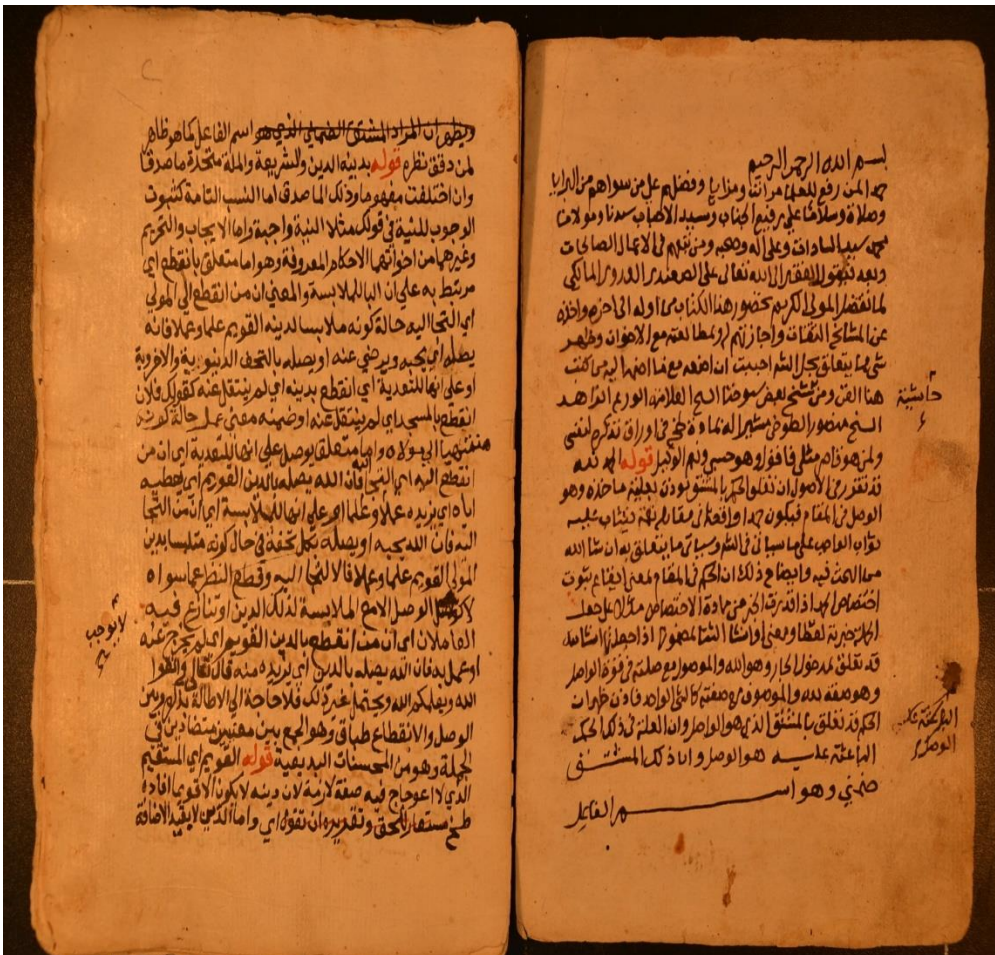 بسم الله الرحمن الرحيم
حمدا لمن رفع للعلماء مراتب ومزايا وفضلهم على من سواهم من البرايا
وصلاة وسلاما على رفيع الجناب وسيد الاحباب سيدنا ومولانا
محمد سيد السادات وعلى اله وصحبه ومن تبعهم في الاعمال الصالحات
وبعد فيقول الفقير الى الله تعالى على الصعيدي العدوي المالكي
لما تفضل المولى الكريم بحضور هذا الكتاب من اوله الى اخره واخذه
عن المشائخ الثقات واجازتهم لي ومطالعته مع الاخوان وظهر
شي مما يتعلق بحل الشرح احببت ان اضعه مع ما اضمه اليه من كتب
هذا الفن ومن نسخ لبعض شيوخنا الشيخ العلامة الورع الزاهد
الشيخ منصور الطوخي مشيرا له بمادة طخ في اوراق تذكرة لنفسي
ولمن هو قاصر مثلي فاقول وهو حسبي ونعم الوكيل قوله الحمد لله
قد تقرر في الاصول ان تعلق الحكم بالمشتق يوذن بعلية ماخذه وهو
الوصل في المقام فيكون حمدا واقعا في مقابلة نعمة فيثاب عليه
ثواب الواجب على ما سياتي في الشرح وسياتي ما يتعلق به ان شا الله
من البحث فيه وايضاح ذلك ان الحكم في المقام ومعنى ايقاع ثبوت
اختصاص الحمد اذا قدرت الخبر من مادة الاختصاص مثلا على جعل
الجملة خبرية لفظا ومعنى او انشا الثنا بمضمونها اذا جعلتها انشائية
قد تعلق بمدخول الجار وهو الله والموصول مع صلته في قوة الواصل
وهو صفة لله والموصوف مع صفته كالشي الواحد فاذن ظهر ان
الحكم قد تعلق بالمشتق الذي هو الواصل وان العلة في ذلك الحكم
الباعثة عليه هو الوصل وان ذلك المشتق
ضمني وهو اسم الفاعل
حاشية
ويظهر ان المراد المشتق الضمني الذي هو اسم الفاعل كما هو ظاهر
لمن دقق نظره قوله بدينه الدين والشريعة والملة متحدة ماصدقا
وان اختلفت مفهوما وذلك الماصدق اما النسب التامة كثبوت
الوجوب للنية في قولك مثلا النية واجبة واما الايجاب والتحريم
وغيرهما من اخواتهما الاحكام المعروفة وهو اما متعلق بانقطع اي
مرتبط به على ان البا للملابسة والمعنى ان من انقطع الى المولى
اي التجا اليه حالة كونه ملابسا لدينه القويم علما وعملا فانه
يصله اي يحبه ويرضى عنه او يصله بالتحف الدنيوية والاخروية
او على انها للتعدية اي انقطع بدينه اي لم ينتقل عنه كقولك فلان
انقطع بالمسجد اي لم ينتقل عنه او ضمنه معنى عمل حالة كونه
منتهيا الى مولاه واما متعلق بوصل على انها للتعدية اي ان من
انقطع اليه اي التجا فان الله يصله بالدين القويم اي يعطيه
اياه اي يزيده عملا وعلما او على انها للملابسة اي ان من التجا
اليه فان الله يحبه او يصله بكل تحفة في حال كونه متلبسا بدين
المولى القويم علما وعملا فالالتجا اليه وقطع النظر عما سواه
الوصل الامع الملابسة لذلك الدين او تنازع فيه
العاملان اي ان من انقطع بالدين القويم اي لم يخرج عنه
او عمل به فان الله يصله بالدين اي يزيده منه قال تعالى واتقوا
الله ويعلمكم الله ويحتمل غير ذلك فلا حاجة الى الاطالة بذكره وبين
الوصل والانقطاع طباق وهو الجمع بين معنيين متضادين في
الجملة وهو من المحسنات البديعية قوله القويم اي المستقيم
الذي لا اعوجاج فيه صفة لازمة لان دينه لا يكون الا قويما افاده
طخ مستعار للحق وتقديره ان تقول اي واما الدين لا بقيد الاضافة
لا يوجب